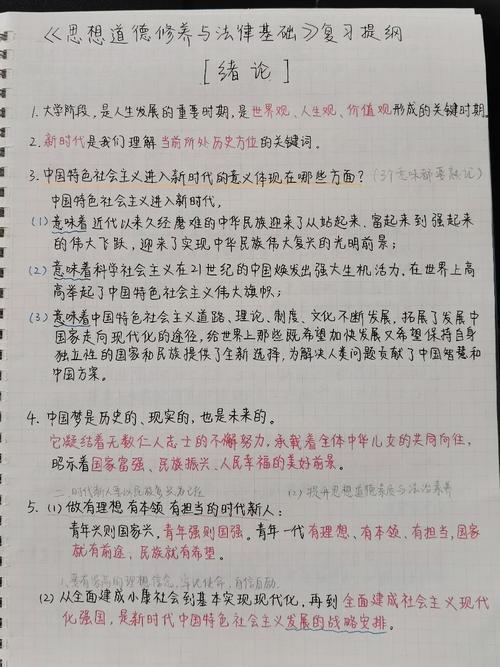 《思想道德修养与法律基础》复习提纲
[绪论]
1. 大学阶段，是人生发展的重要时期，是世界观、人生观、价值观形成的关键时期。
2. 新时代是我们理解当前所处历史方位的关键词.
3. 中国特色社会主义进入新时代的意义体现在哪些方面？(3个意味都要熟记)
中国特色社会主义进入新时代，
(1) 意味着近代以来久经磨难的中华民族迎来了从站起来、富起来到强起来
的伟大飞跃，迎来了实现中华民族伟大复兴的光明前景；
(2) 意味着科学社会主义在21世纪的中国焕发出强大生机活力，在世界上高
高举起了中国特色社会主义伟大旗帜；
(3) 意味着中国特色社会主义道路、理论、制度、文化不断发展，拓展了发展中
国家走向现代化的途径，给世界上那些既希望加快发展又希望保持自身
独立性的国家和民族提供了全新选择，为解决人类问题贡献了中国智慧和
中国方案。
4. 中国梦是历史的、现实的，也是未来的。
它凝结着无数仁人志士的不懈努力，承载着全体中华儿女的共同向往，
昭示着国家富强、民族振兴、人民幸福的美好前景。
二、时代新人要以民族复兴为己任 (2) 提升思想道德素质与法治素养
5. (1) 做有理想 有本领 有担当的时代新人：
青年兴则国家兴，青年强则国强。青年一代有理想、有本领、有担当，国家
就有前途，民族就有希望。
1. 要有崇高的理想信念，牢记使命，自信自励.
(2) 从全面建成小康社会到基本实现现代化，再到全面建成社会主义现代
化强国，是新时代中国特色社会主义发展的战略安排。